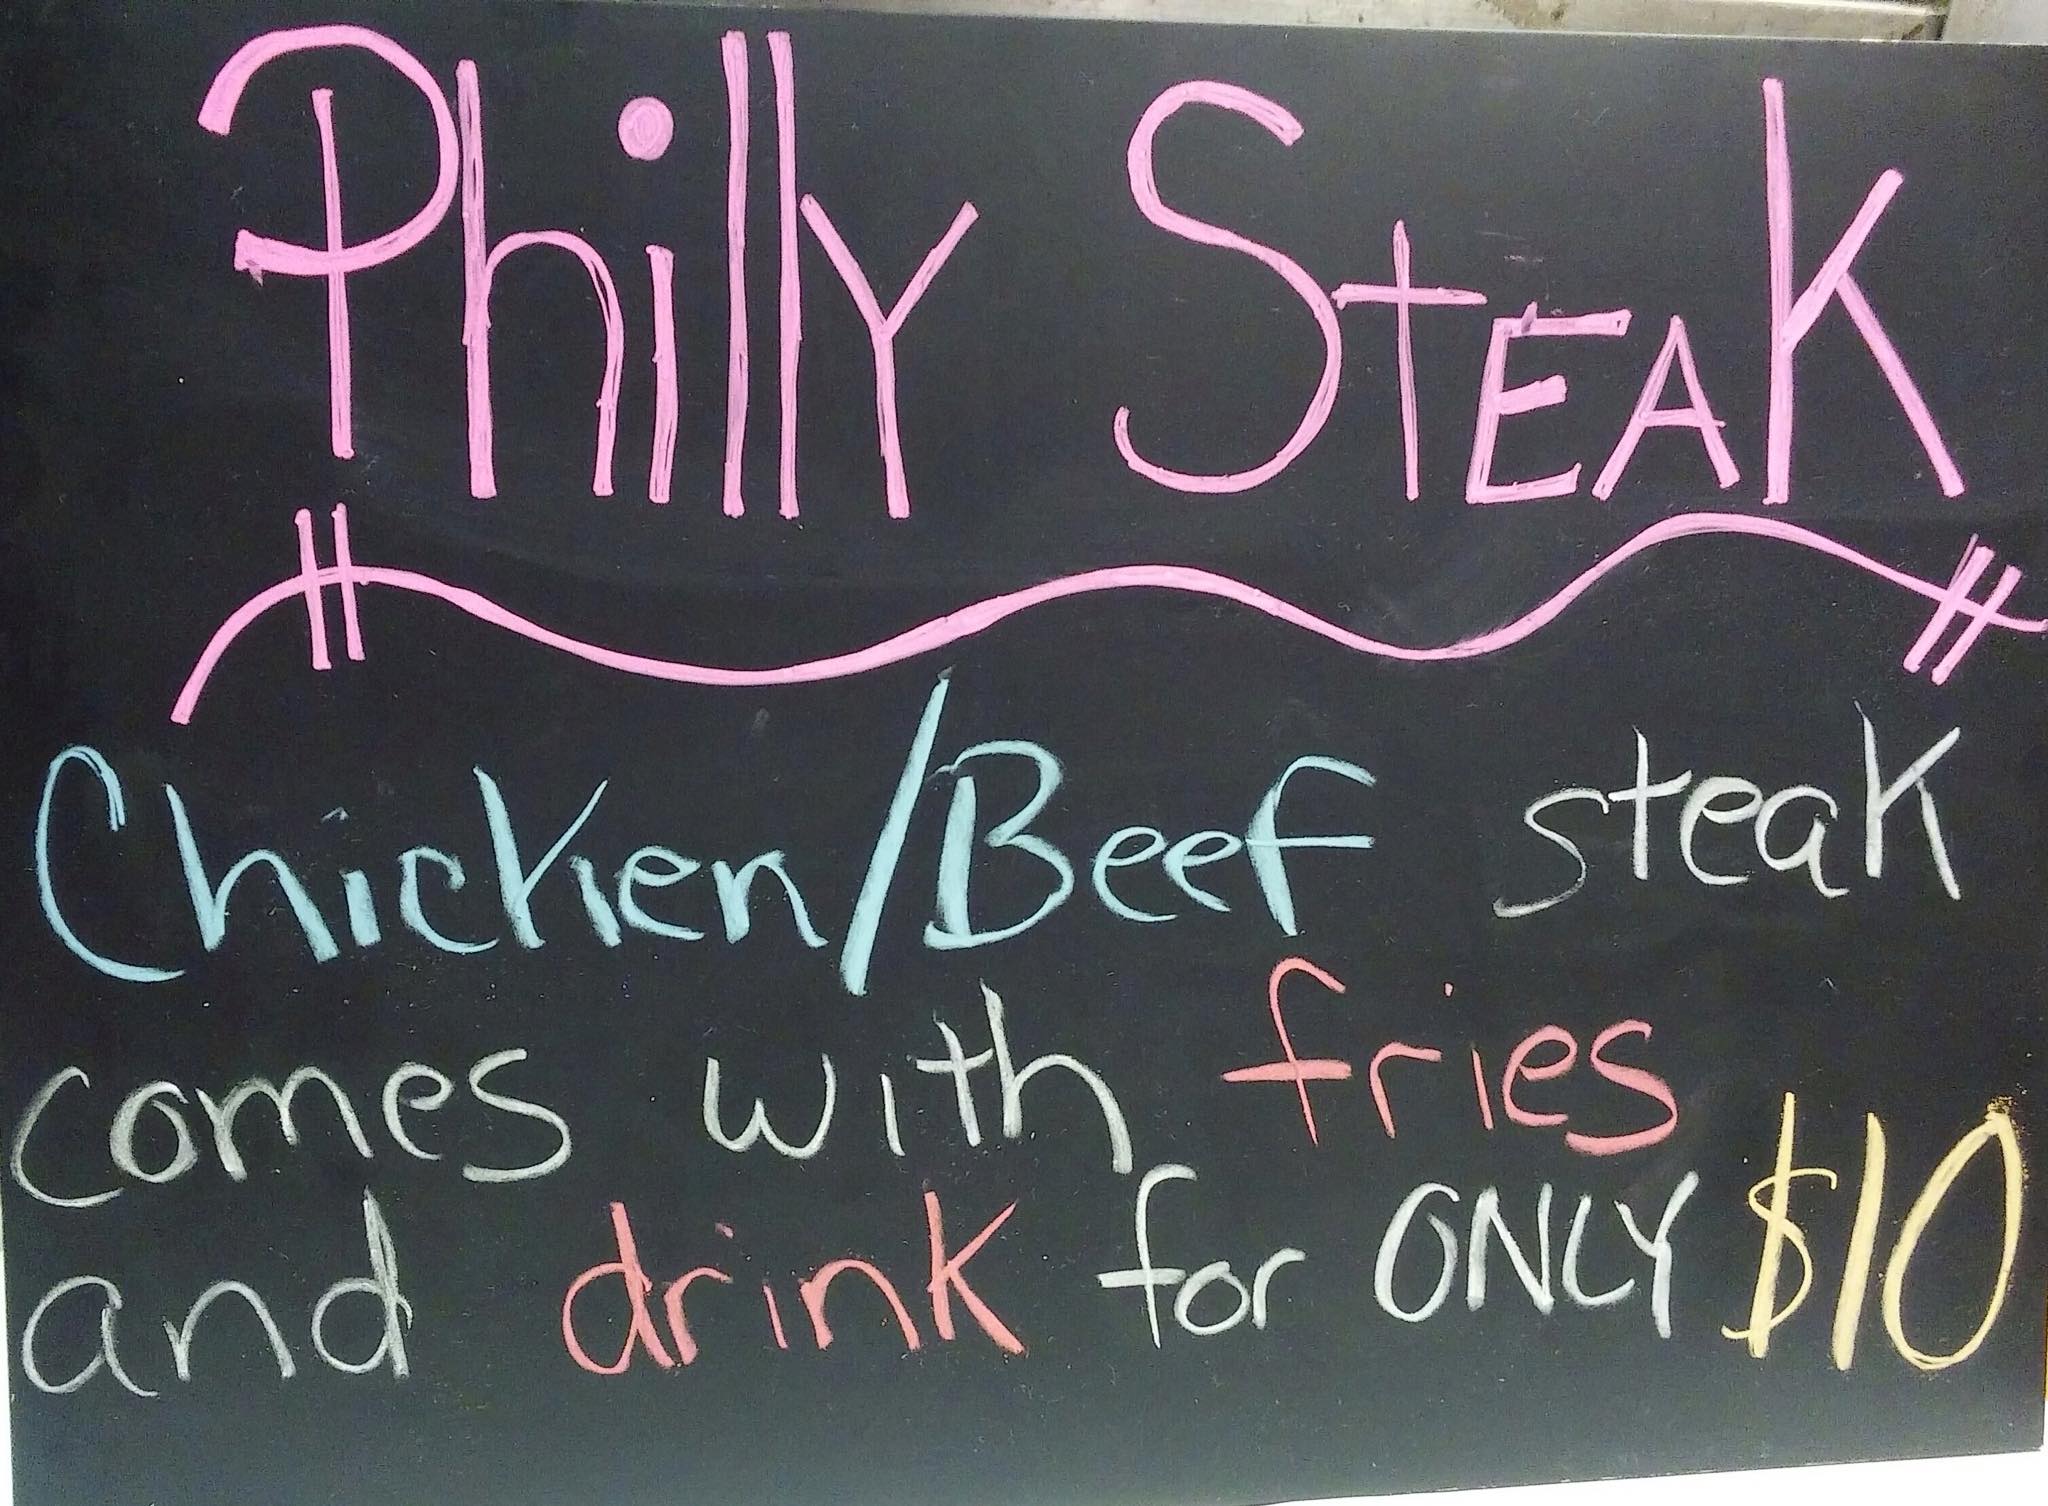 Philly Steak
Chicken/Beef steak
comes with fries
and drink for ONLY $10